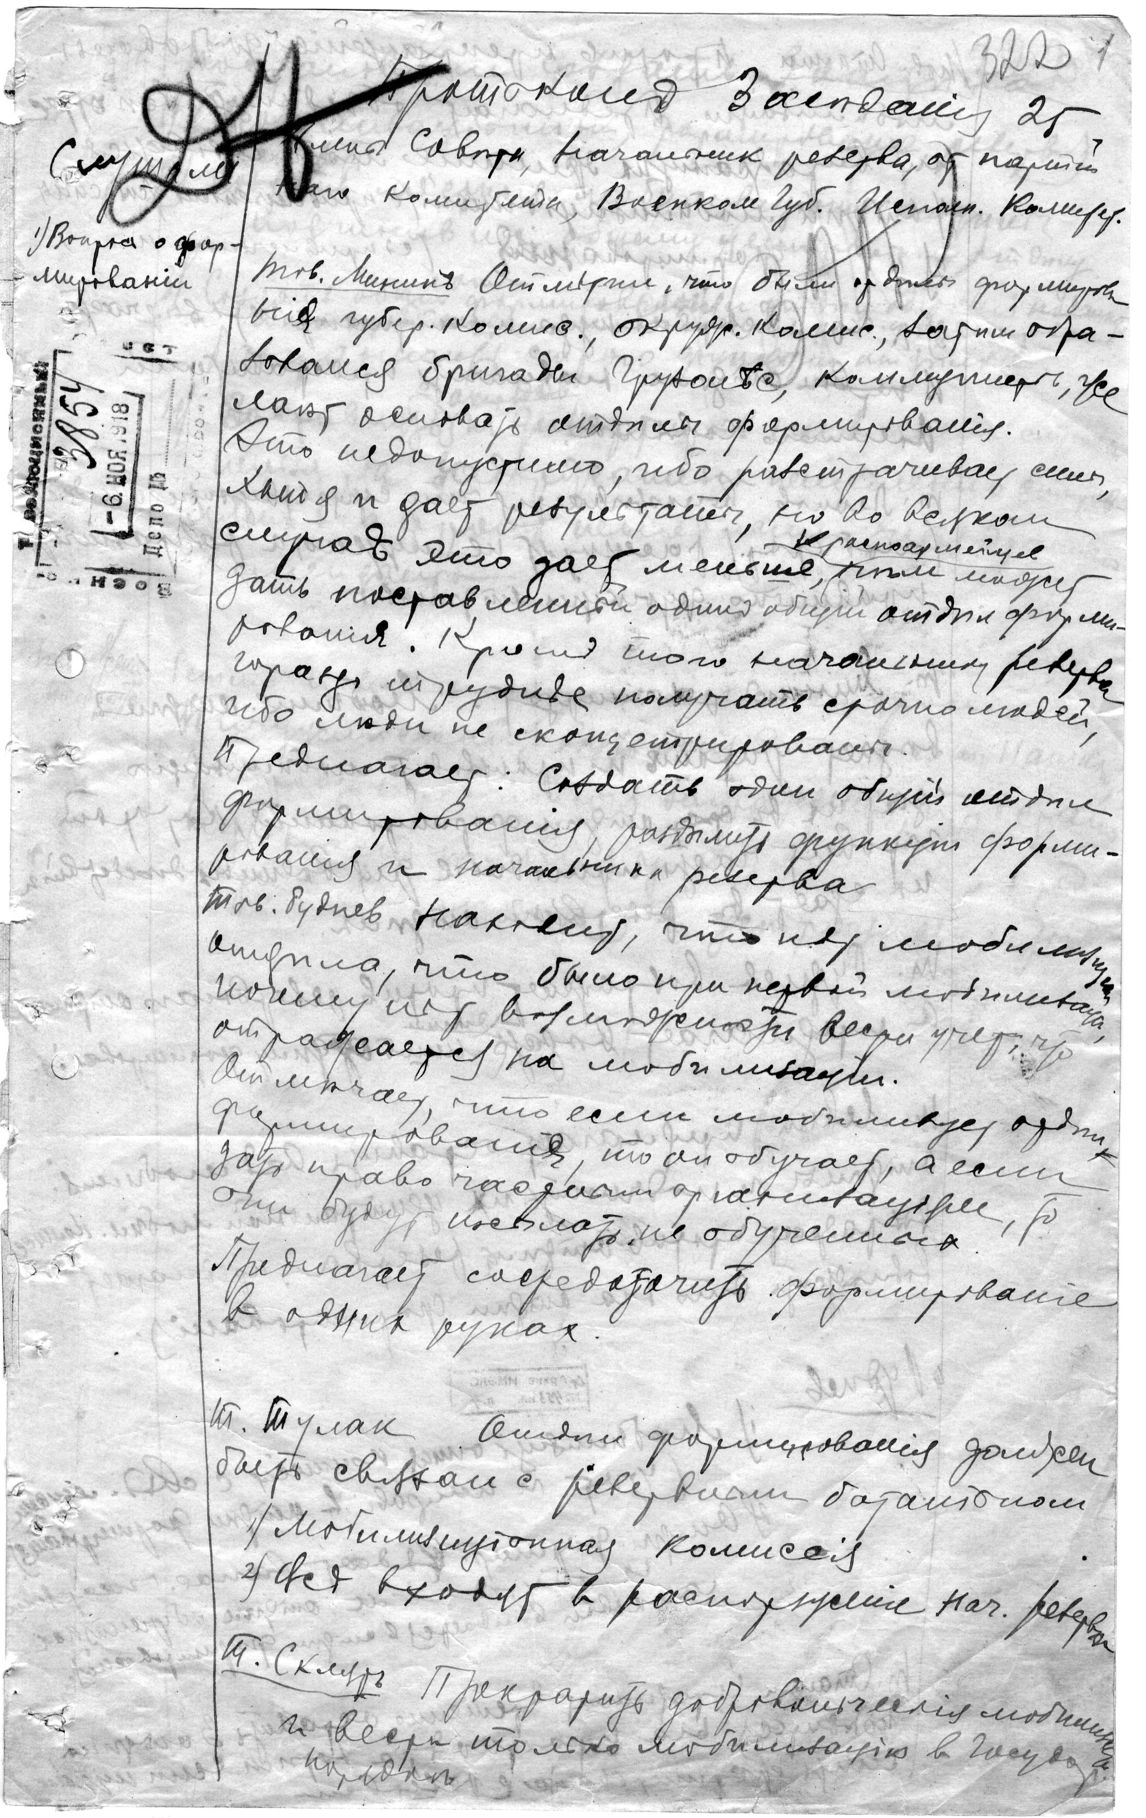 322 1
Протоколъ Засѣданія 25
Слушали
члены Совѣта, начальник резерва, от партій
наго Комитета, Военком Губ. Исполн. Комитет.
1) Вопрос о фор-
мированіи
тов. Мининъ Отмѣтил, что были отдѣлы формирова
нія губер. Комис., окруж. Комис., затѣм обра-
зовался бригады Грузолѣс, Коммунисты, же
лают основать отдѣлы формированія.
Это недопустимо, ибо растрачивает силы,
хотя и дает результаты, но во всяком
случаѣ это дает меньше, красноармейцев чѣм может
дать поставленный один общій отдѣл форми-
рованія. Кромѣ того начальнику резерва
гораздо труднѣе получать срочно людей,
ибо люди не сконцетрированы.
Предлагает: Создать один общій отдѣл
формированія, раздѣлить функціи форми-
рованія и начальника резерва
тов. Буднев находит, что нѣт мобилизаціон
отдѣла, что было при первой мобилизаціи,
почему нѣт возможности вести учет, что
отражается на мобилизаціи.
Отмѣчает, что если мобилизует отдѣл
формированія, то он обучает, а если
дать право частным организаціям, то
они будут посылать не обученных.
Предлагает сосредоточить формированіе
в одних руках.
Т. Тулак Отдѣл формированія должен
быть связан с резервным баталіоном
1) Мобилизаціонная Комиссія
2) Всѣ входят в распоряженіе нач. резерва
Т. Скляръ Прекратить добровольческія мобилизац.
и вести только мобилизацію в Госуд.
порядкѣ
3854
-6. НОЯ. 1918
Дело №